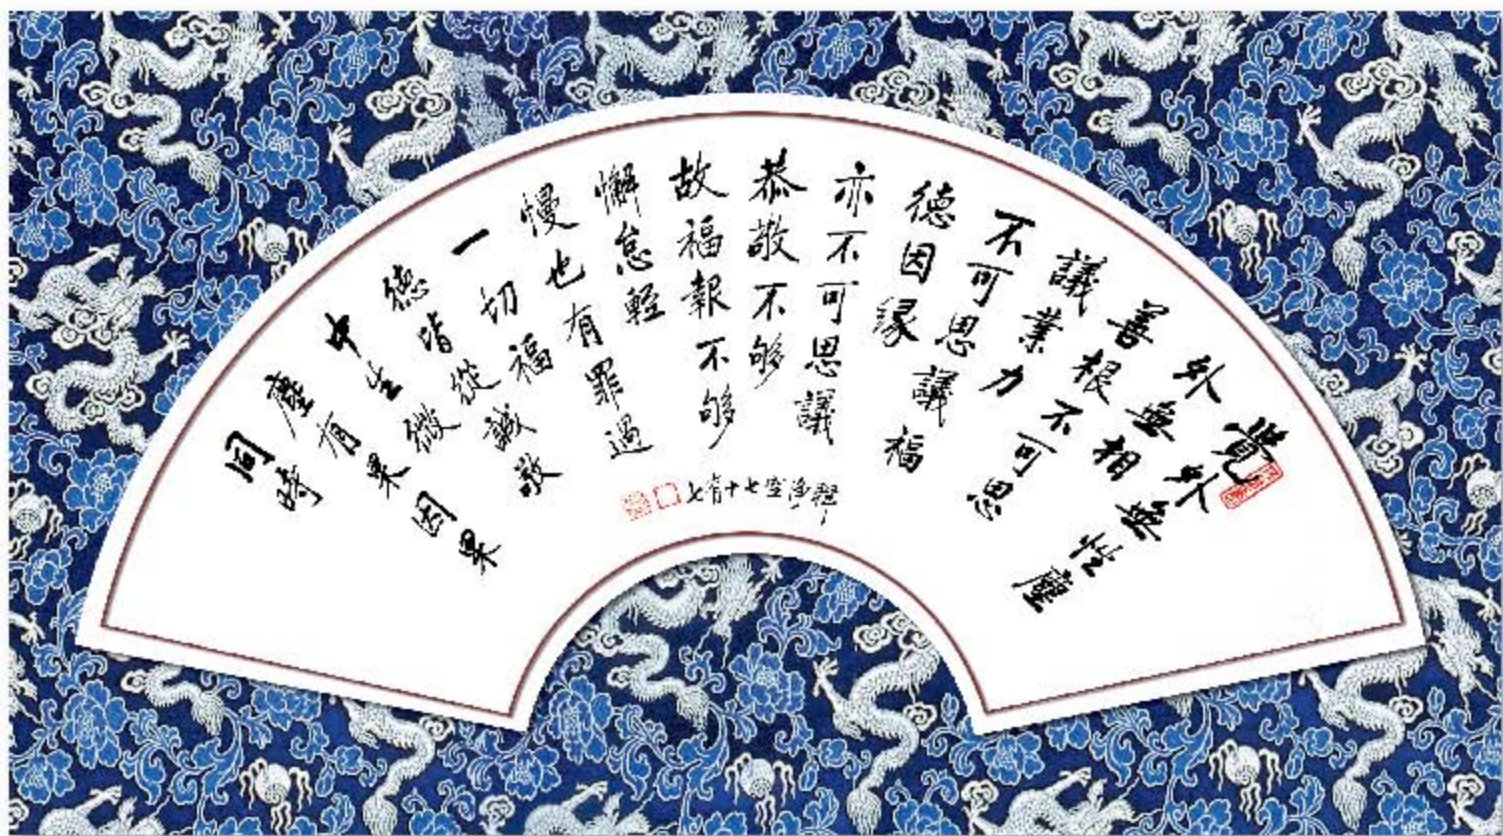 覺外無性塵
外無相
善根不可思
議業力
不可思議福
德因緣
亦不可思議
恭敬不够
故福報不够
懈怠輕
慢也有罪過
一切福
德皆從誠敬
中生微
塵有果因果
同時
釋淨空七十有七